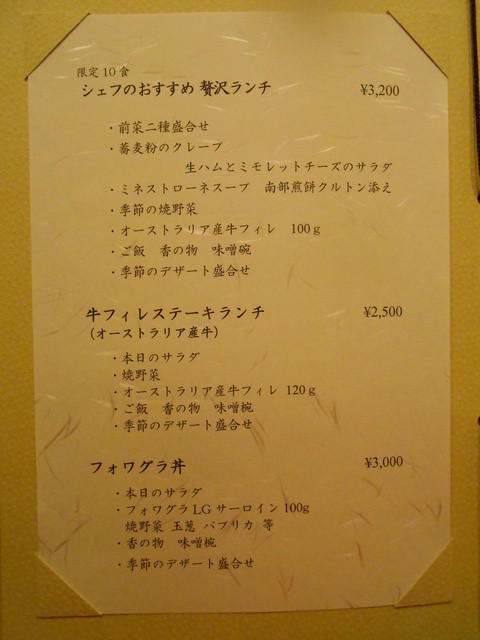 限定10食
シェフのおすすめ 贅沢ランチ ¥3,200
・前菜二種盛合せ
・蕎麦粉のクレープ
生ハムとミモレットチーズのサラダ
・ミネストローネスープ 南部煎餅クルトン添え
・季節の焼野菜
・オーストラリア産牛フィレ 100g
・ご飯 香の物 味噌椀
・季節のデザート盛合せ
牛フィレステーキランチ ¥2,500
(オーストラリア産牛)
・本日のサラダ
・焼野菜
・オーストラリア産牛フィレ 120g
・ご飯 香の物 味噌椀
・季節のデザート盛合せ
フォワグラ丼 ¥3,000
・本日のサラダ
・フォワグラLGサーロイン100g
焼野菜 玉葱 パプリカ 等
・香の物 味噌椀
・季節のデザート盛合せ